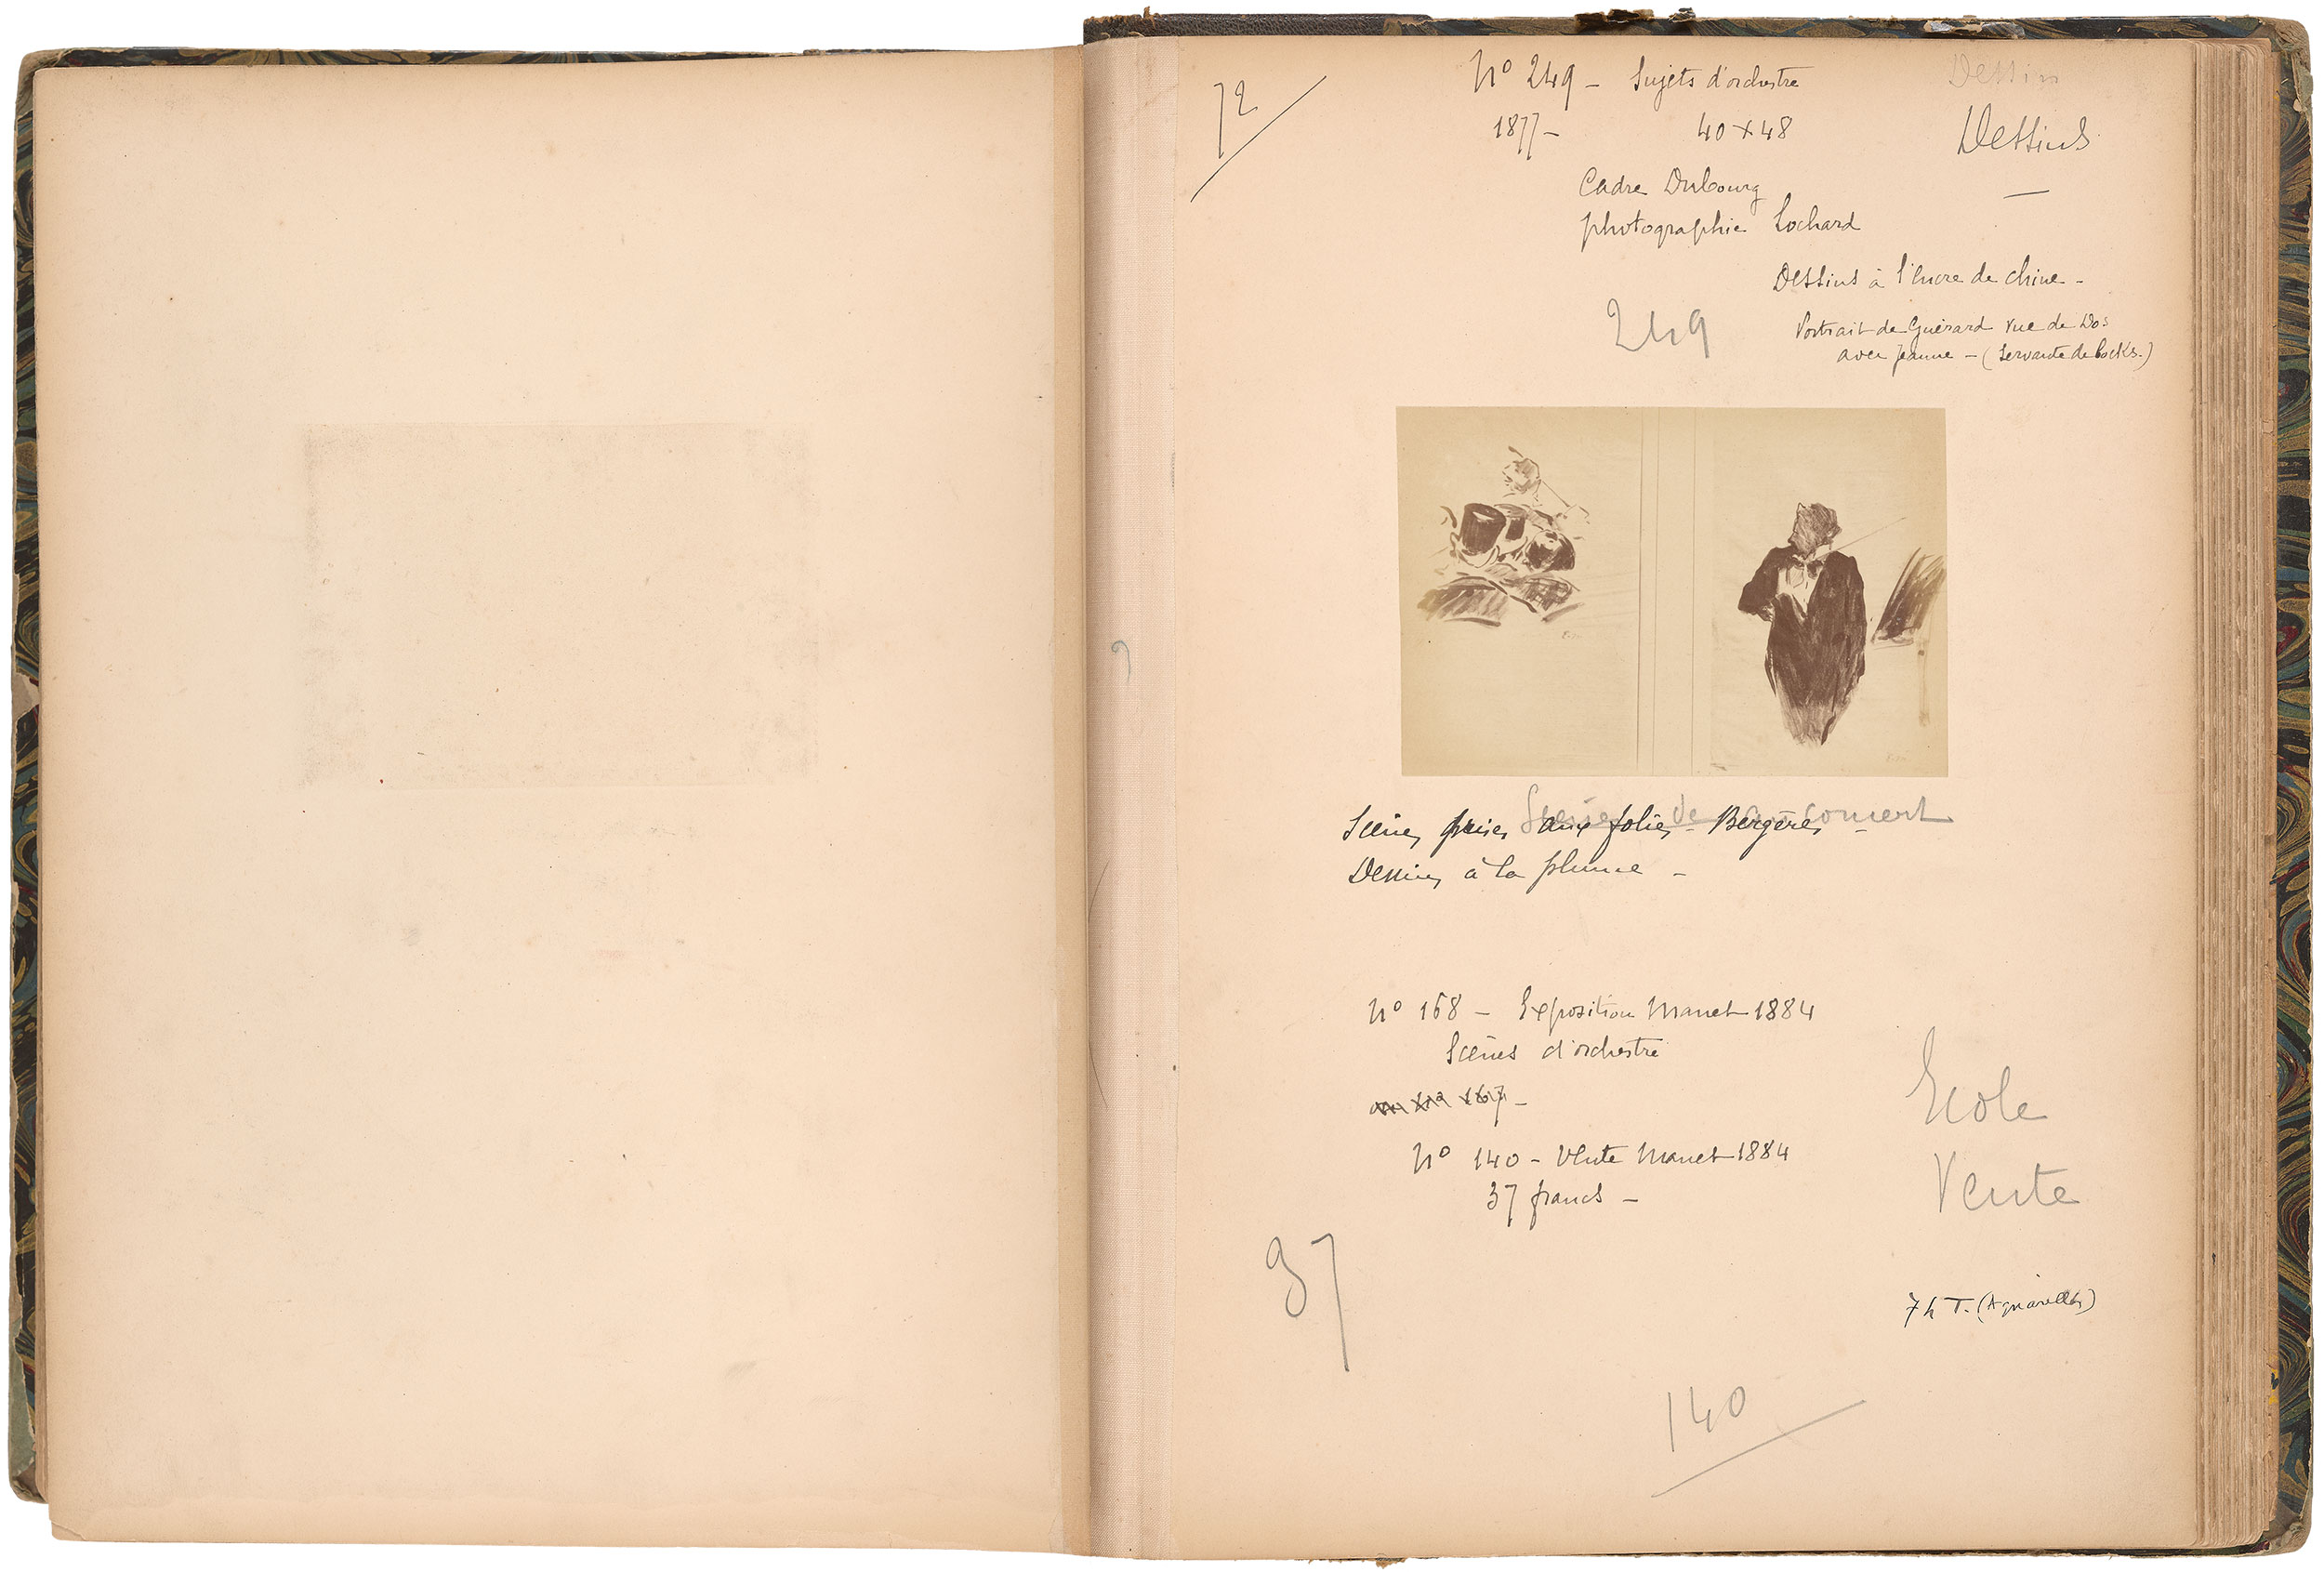 72
Nº 249 - Sujets d'orchestre
Dessin
1877- 40 x 48
Dessins
Cadre Dubourg
photographie Lochard
Dessins à l'encre de chine -
249
Portrait de Guérard vue de Dos
avec Jeanne - (Servante de bocks.)
9
Scènes de concert
Scènes prises aux folies-Bergères -
Dessins à la plume -
Nº 168 - Exposition Manet 1884
Scènes d'orchestre
Nº 167 -
Ecole
Nº 140 - Vente Manet 1884
37 francs -
Vente
37
74 T. (Aquarelles)
140